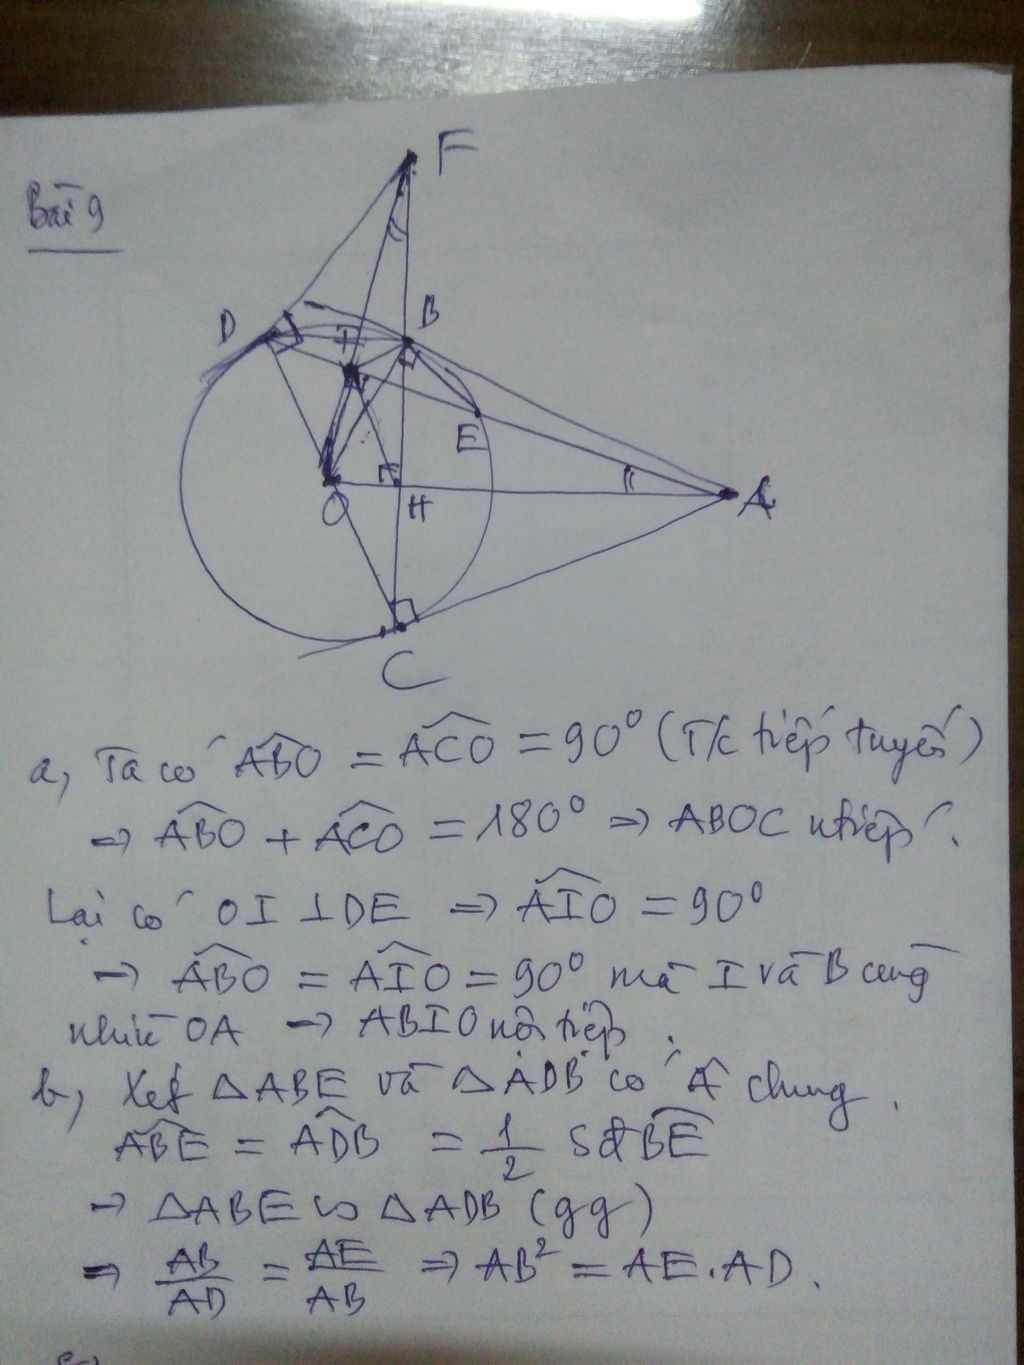 Bài 9
F
D
I
B
E
O
H
A
C
a, Ta có ∠ABO = ∠ACO = 90° (T/c tiếp tuyến)
⇒ ∠ABO + ∠ACO = 180° ⇒ ABOC ntiếp.
Lại có OI ⊥ DE ⇒ ∠AIO = 90°
→ ∠ABO = ∠AIO = 90° mà I và B cùng
nhìn OA → ABIO nội tiếp.
b, Xét △ABE và △ADB có Â chung.
∠ABE = ∠ADB = 1/2 Sđ BE
→ △ABE ∽ △ADB (gg)
⇒ AB/AD = AE/AB ⇒ AB² = AE.AD.